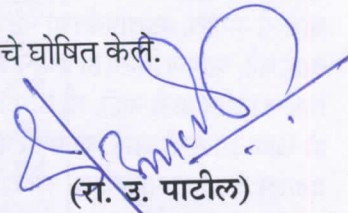 चे घोषित केले.
(रा. उ. पाटील)